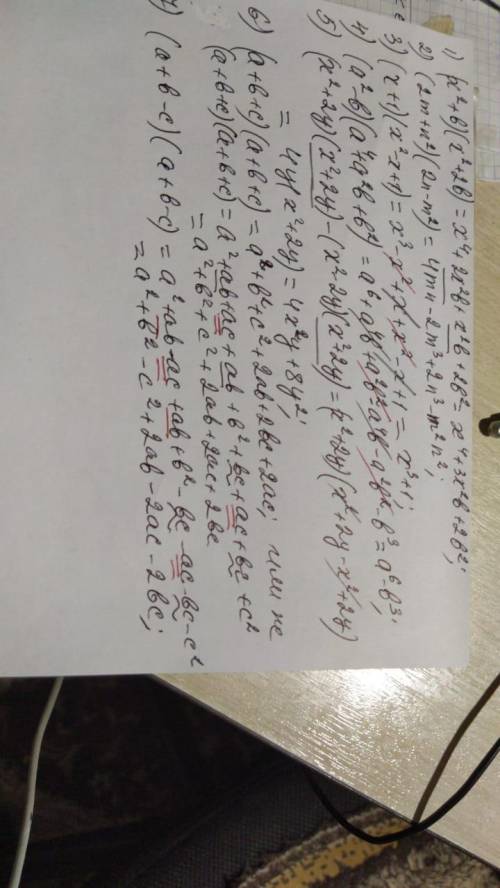 1) (x²+b)(x²+2b) = x⁴+2x²b+x²b+2b² = x⁴+3x²b+2b²;
2) (2m+n²)(2n-m²) = 4mn-2m³+2n³-m²n²;
3) (x+1)(x²-x+1) = x³-x²+x+x²-x+1 = x³+1;
4) (a²-b)(a⁴+a²b+b²) = a⁶+a⁴b+a²b²-a⁴b-a²b²-b³ = a⁶-b³;
5) (x²+2y)(x²+2y)-(x²-2y)(x²+2y) = (x²+2y)(x²+2y-x²+2y)
= 4y(x²+2y) = 4x²y+8y²;
6) (a+b+c)(a+b+c) = a²+b²+c²+2ab+2bc+2ac; или же
(a+b+c)(a+b+c) = a²+ab+ac+ab+b²+bc+ac+bc+c²
= a²+b²+c²+2ab+2ac+2bc
7) (a+b-c)(a+b-c) = a²+ab-ac+ab+b²-bc-ac-bc-c²
= a²+b²-c²+2ab-2ac-2bc;